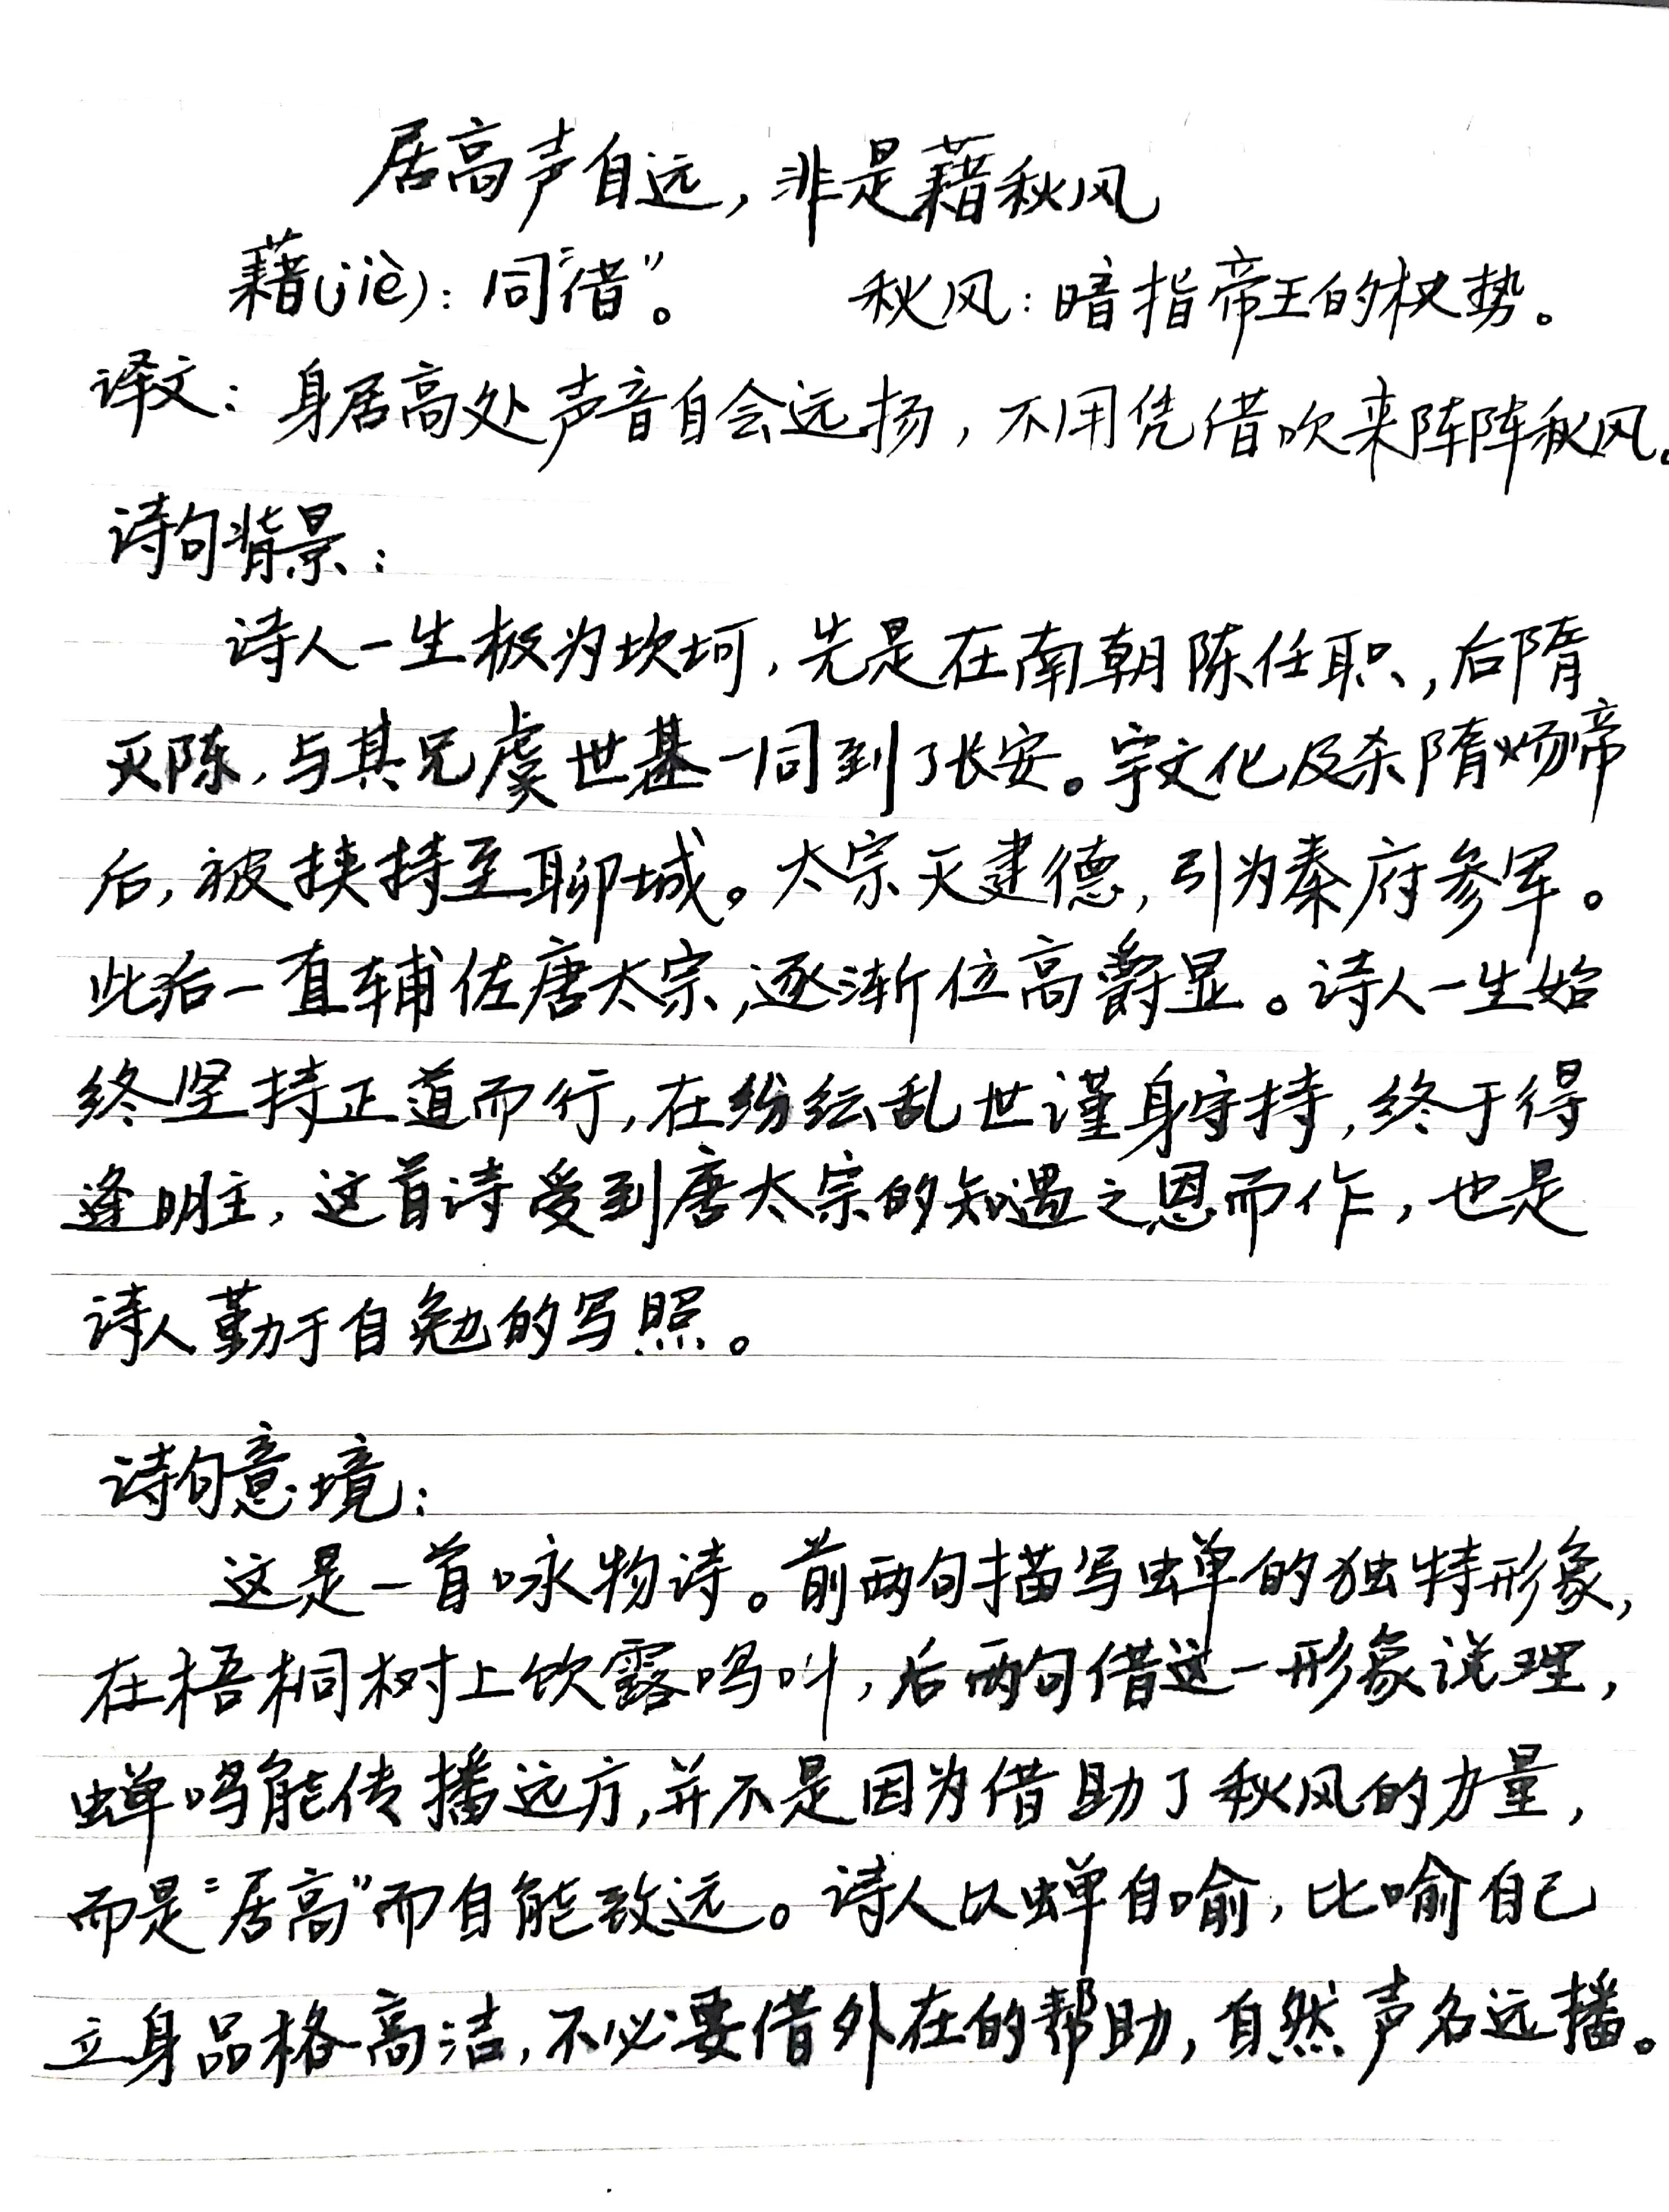 居高声自远，非是藉秋风
藉(jiè)：同“借”。 秋风：暗指帝王的权势。
译文：身居高处声音自会远扬，不用凭借吹来阵阵秋风。
诗句背景：
诗人一生极为坎坷，先是在南朝陈任职，后隋
灭陈，与其兄虞世基一同到了长安。宇文化及杀隋炀帝
后，被挟持至聊城。太宗灭建德，引为秦府参军。
此后一直辅佐唐太宗，逐渐位高爵显。诗人一生始
终坚持正道而行，在纷纭乱世谨身守持，终于得
逢明主，这首诗受到唐太宗的知遇之恩而作，也是
诗人勤于自勉的写照。
诗句意境：
这是一首咏物诗。前两句描写蝉的独特形象，
在梧桐树上饮露鸣叫，后两句借这一形象说理，
蝉鸣能传播远方，并不是因为借助了秋风的力量，
而是“居高”而自能致远。诗人以蝉自喻，比喻自己
立身品格高洁，不必要借外在的帮助，自然声名远播。